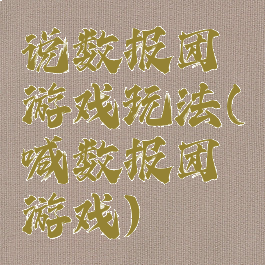 说数报团
游戏玩法(
喊数报团
游戏)